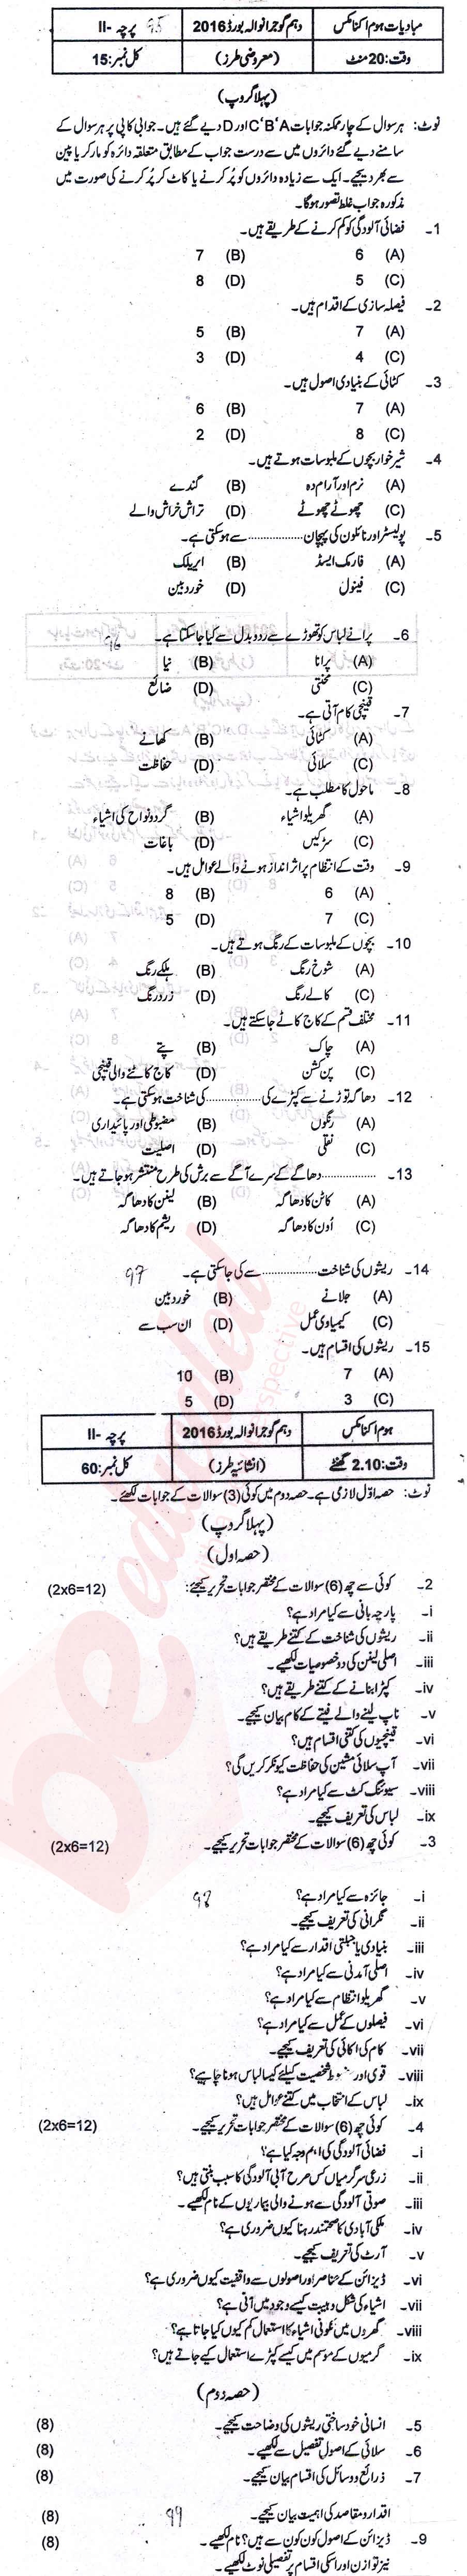 مبادیات ہوم اکنامکس دہم گوجرانوالہ بورڈ 2016 پرچہ -II
95
وقت:20 منٹ (معروضی طرز) کل نمبر:15
(پہلا گروپ)
نوٹ: ہر سوال کے چار ممکنہ جوابات C‘B‘A اور D دیے گئے ہیں۔ جوابی کاپی پر ہر سوال کے
سامنے دیے گئے دائروں میں سے درست جواب کے مطابق متعلقہ دائرہ کو مارکر یا پین
سے بھر دیجیے۔ ایک سے زیادہ دائروں کو پُر کرنے یا کاٹ کر پُر کرنے کی صورت میں
مذکورہ جواب غلط تصور ہوگا۔
1- فضائی آلودگی کو کم کرنے کے طریقے ہیں۔
(A) 6 (B) 7
(C) 5 (D) 8
2- فیصلہ سازی کے اقدام ہیں۔
(A) 7 (B) 5
(C) 4 (D) 3
3- کٹائی کے بنیادی اصول ہیں۔
(A) 7 (B) 6
(C) 8 (D) 2
4- شیر خوار بچوں کے ملبوسات ہوتے ہیں۔
(A) نرم اور آرام دہ (B) گندے
(C) چھوٹے چھوٹے (D) تراش خراش والے
5- پولیسٹر اور نائلون کی پہچان ............... سے ہوسکتی ہے۔
(A) فارمک ایسڈ (B) ایریلک
(C) فینول (D) خوردبین
6- پرانے لباس کو تھوڑے سے ردوبدل سے کیا جاسکتا ہے۔
96
(A) پرانا (B) نیا
(C) مختی (D) ضائع
7- قینچی کام آتی ہے۔
(A) کٹائی (B) کھانے
(C) سلائی (D) حفاظت
8- ماحول کا مطلب ہے۔
(A) گھریلو اشیاء (B) گردونواح کی اشیاء
(C) سڑکیں (D) باغات
9- وقت کے انتظام پر اثر انداز ہونے والے عوامل ہیں۔
(A) 6 (B) 8
(C) 7 (D) 5
10- بچوں کے ملبوسات کے رنگ ہوتے ہیں۔
(A) شوخ رنگ (B) ہلکے رنگ
(C) کالے رنگ (D) زرد رنگ
11- مختلف قسم کے کاج کاٹے جاسکتے ہیں۔
(A) چاک (B) پتے
(C) پن کشن (D) کاج کاٹنے والی قینچی
12- دھاگہ توڑنے سے کپڑے کی ............... کی شناخت ہوسکتی ہے۔
(A) رنگوں (B) مضبوطی اور پائیداری
(C) نقلی (D) اصلیت
13- ............... دھاگے کے سرے آگے سے برش کی طرح منتشر ہو جاتے ہیں۔
(A) کاٹن کا دھاگہ (B) لینن کا دھاگہ
(C) اُون کا دھاگہ (D) ریشم کا دھاگہ
14- ریشوں کی شناخت ............... سے کی جاسکتی ہے۔
97
(A) جلانے (B) خوردبین
(C) کیمیاوی عمل (D) ان سب سے
15- ریشوں کی اقسام ہیں۔
(A) 7 (B) 10
(C) 3 (D) 5
ہوم اکنامکس دہم گوجرانوالہ بورڈ 2016 پرچہ -II
وقت:2.10 گھنٹے (انشائیہ طرز) کل نمبر:60
نوٹ: حصہ اوّل لازمی ہے۔ حصہ دوم میں کوئی (3) سوالات کے جوابات لکھئے۔
(پہلا گروپ)
(حصہ اول)
2- کوئی سے چھ (6) سوالات کے مختصر جوابات تحریر کیجئے: (2x6=12)
i- پارچہ بانی سے کیا مراد ہے؟
ii- ریشوں کی شناخت کے کتنے طریقے ہیں؟
iii- اصلی لینن کی دو خصوصیات لکھیے۔
iv- کپڑا بنانے کے کتنے طریقے ہیں؟
v- ناپ لینے والے فیتے کے کام بیان کیجیے۔
vi- قینچیوں کی کتنی اقسام ہیں؟
vii- آپ سلائی مشین کی حفاظت کیونکر کریں گی؟
viii- سیونگ کٹ سے کیا مراد ہے؟
ix- لباس کی تعریف کیجیے۔
3- کوئی چھ (6) سوالات کے مختصر جوابات تحریر کیجیے۔ (2x6=12)
i- جائزہ سے کیا مراد ہے؟
98
ii- نگرانی کی تعریف کیجیے۔
iii- بنیادی یا جبلتی اقدار سے کیا مراد ہے؟
iv- اصلی آمدنی سے کیا مراد ہے؟
v- گھریلو انتظام سے کیا مراد ہے؟
vi- فیصلوں کے عمل سے کیا مراد ہے؟
vii- کام کی اکائی کی تعریف کیجیے۔
viii- قوی اور شخصیت کیلئے کیسا لباس ہونا چاہیے؟
ix- لباس کے انتخاب میں کتنے عوامل ہیں؟
4- کوئی چھ (6) سوالات کے مختصر جوابات تحریر کیجیے۔ (2x6=12)
i- فضائی آلودگی کی اہم وجہ کیا ہے؟
ii- زرعی سرگرمیاں کس طرح آبی آلودگی کا سبب بنتی ہیں؟
iii- صوتی آلودگی سے ہونے والی بیماریوں کے نام لکھیے۔
iv- ملکی آبادی کا صحتمند رہنا کیوں ضروری ہے؟
v- آرٹ کی تعریف کیجیے۔
vi- ڈیزائن کے عناصر اور اصولوں سے واقفیت کیوں ضروری ہے؟
vii- اشیاء کی شکل و ہیت کیسے وجود میں آتی ہے؟
viii- گھروں میں تکونی اشیاء کا استعمال کم کیوں کیا جاتا ہے؟
ix- گرمیوں کے موسم میں کیسے کپڑے استعمال کیے جاتے ہیں؟
(حصہ دوم)
5- انسانی خود ساختی ریشوں کی وضاحت کیجیے۔ (8)
6- سلائی کے اصول تفصیل سے لکھیے۔ (8)
7- ذرائع و وسائل کی اقسام بیان کیجیے۔ (8)
اقدار و مقاصد کی اہمیت بیان کیجیے۔ (8)
99
9- ڈیزائن کے اصول کون کون سے ہیں؟ نام لکھیے۔ (8)
نیز توازن اور اسکی اقسام پر تفصیلی نوٹ لکھیے۔